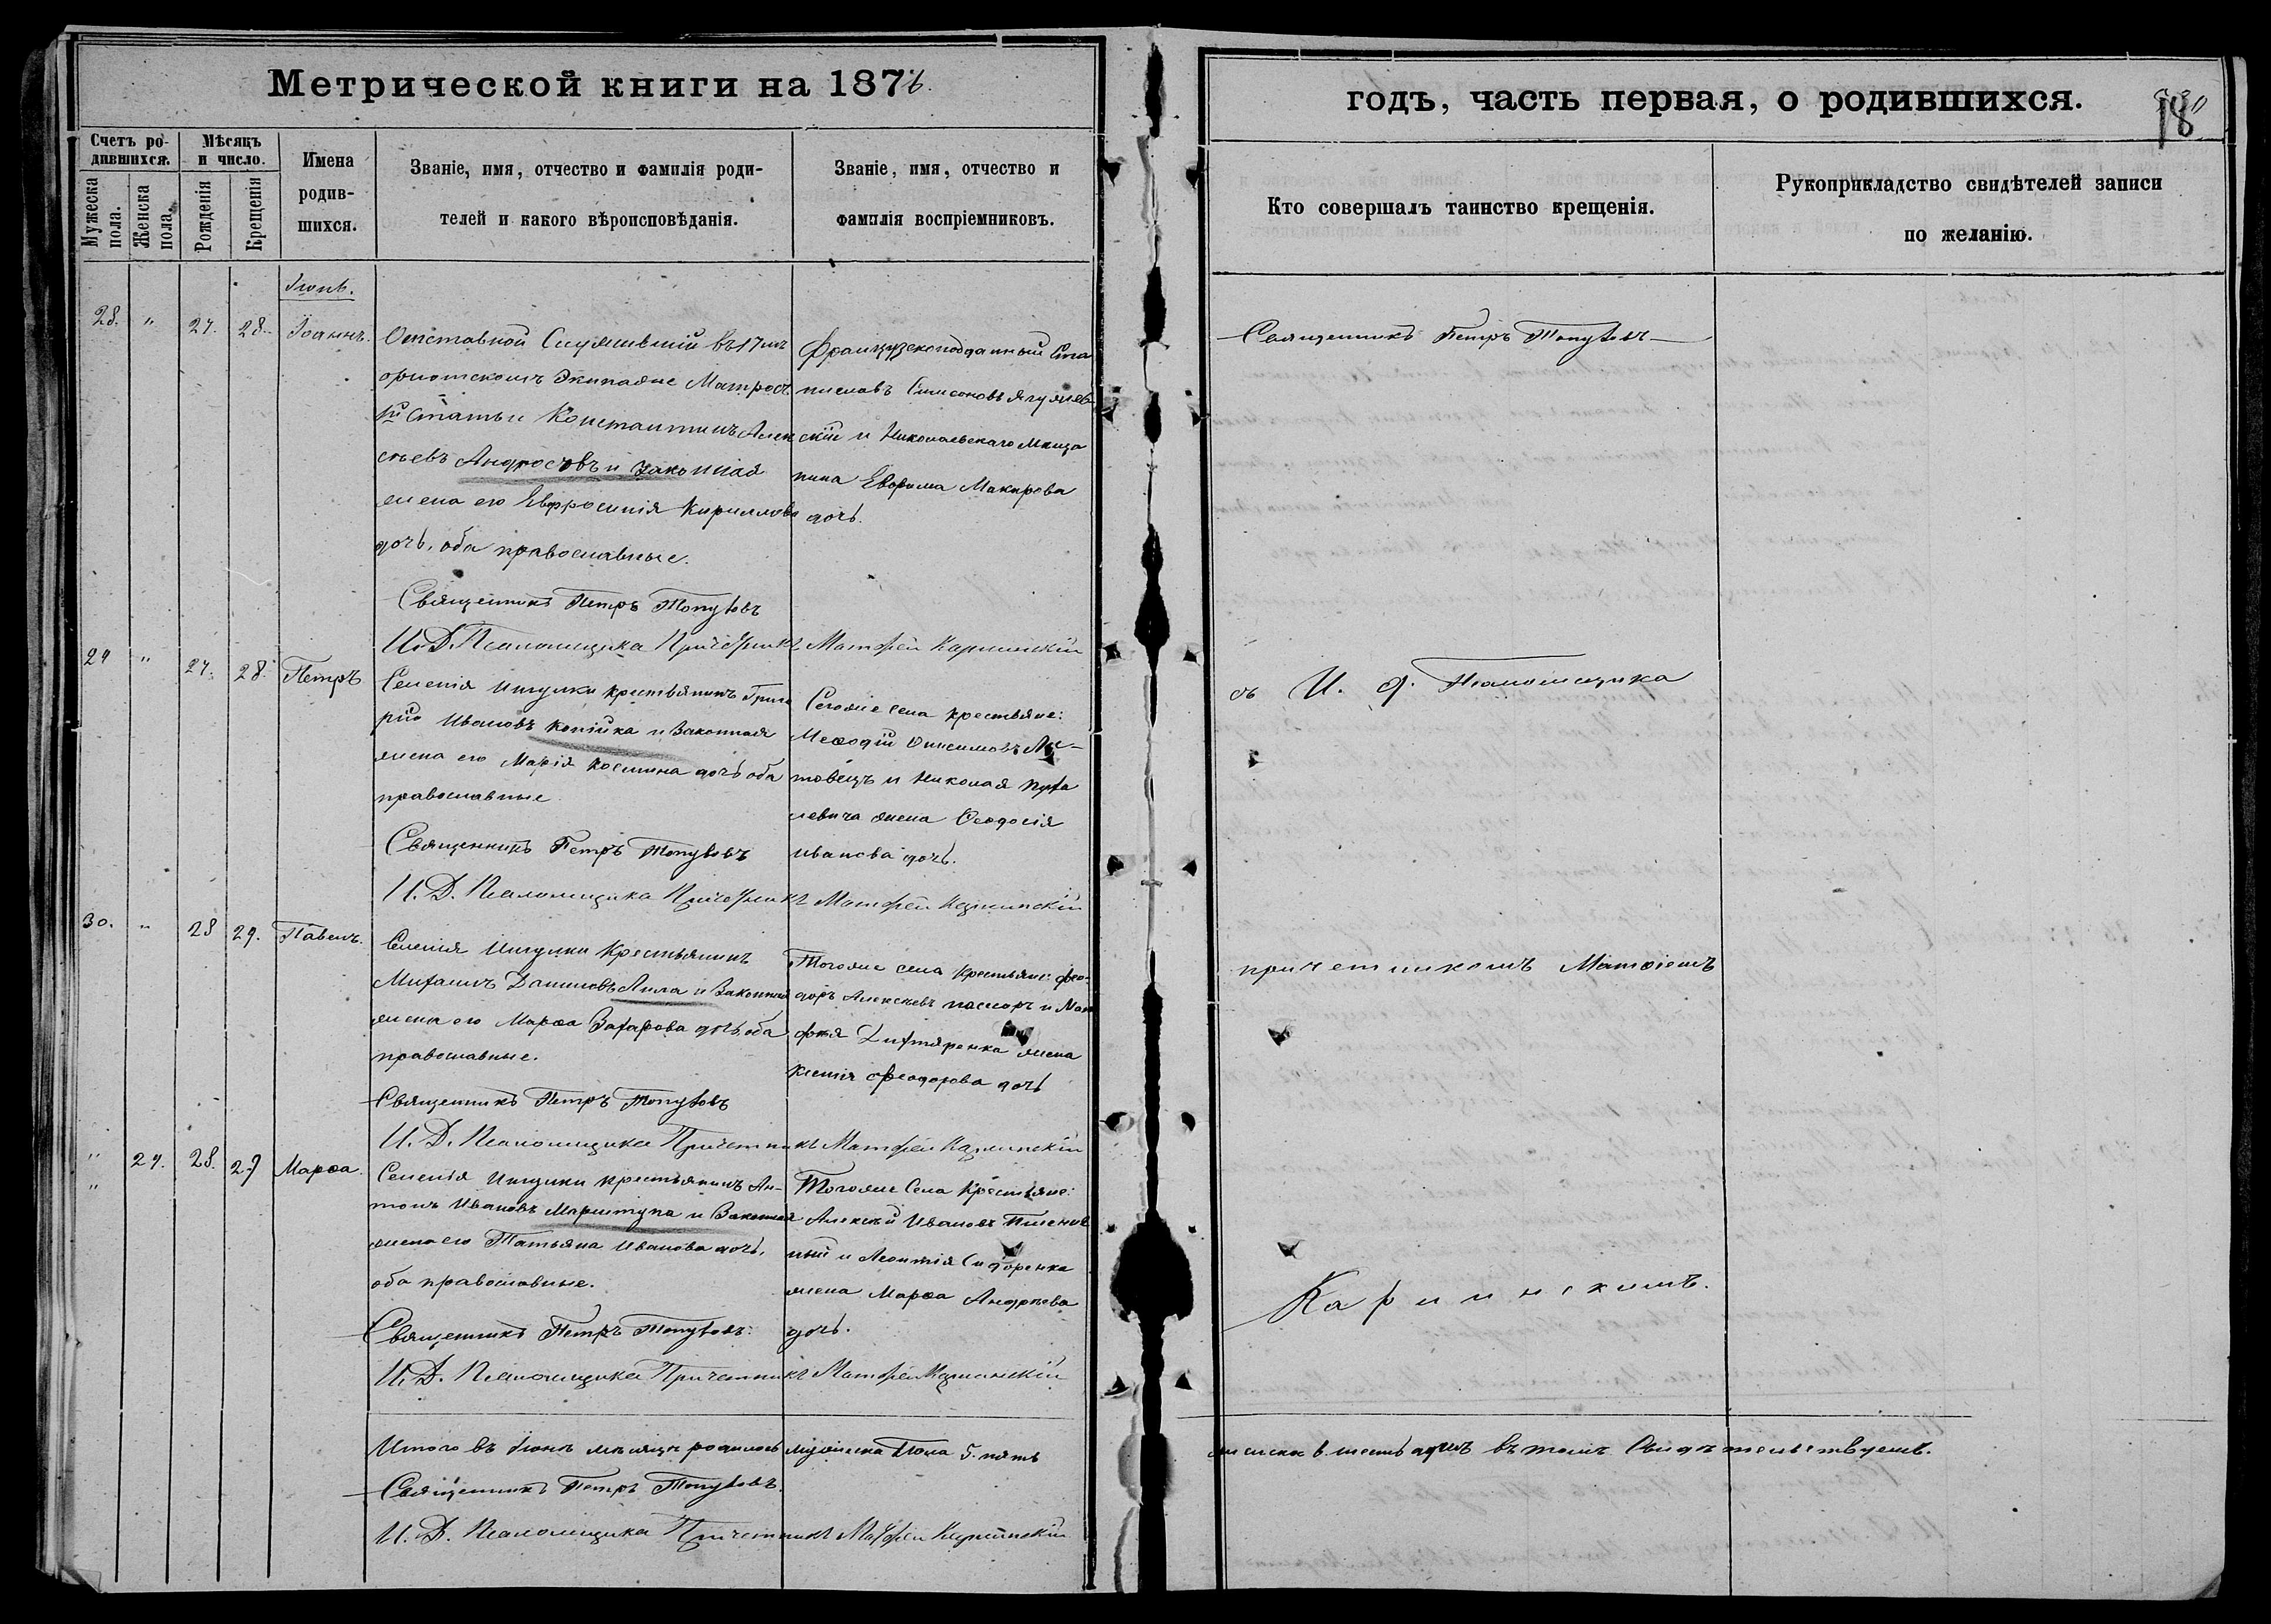 Метрической книги на 1876.
годъ, часть первая, о родившихся.
180
Счетъ родившихся.
Мѣсяцъ и число.
Мужеска пола.
Женска пола.
Рожденія
Крещенія
Имена родив-
шихся.
Званіе, имя, отчество и фамилія роди-
телей и какого вѣроисповѣданія.
Званіе, имя, отчество и
фамилія воспріемниковъ.
Кто совершалъ таинство крещенія.
Рукоприкладство свидѣтелей записи
по желанію.
Іюнь.
28. " 27. 28. Іоаннъ.
Отставной Служившій въ 17мъ
флотскомъ Экипаже Матросъ
Статьи Константинъ Алек
сѣевъ Андросовъ и законная
жена его Евфросинія Кириллова
дочь, оба православные.
Французскоподданный Ста
ниславъ
скій и Николаевскаго Мѣща
нина Макарова
дочь.
Священникъ Петръ Топузовъ
Священникъ Петръ Топузовъ
И. Д. Псаломщика Причетникъ Матфей Каришскій
29 " 27. 28. Петръ
Селенія Ингулки крестьянинъ Григо
рій Ивановъ Копійка и Законная
жена его Марія Космина дочь оба
православные
Тогоже села крестьяне:
Меѳодій Онисимовъ
товецъ и Николая
левича жена Ѳеодосія
Иванова дочь.
съ И. д. Псаломщика
Священникъ Петръ Топузовъ
И. Д. Псаломщика Причетникъ Матфей
30. " 28 29. Павелъ.
Селенія Ингулки Крестьянинъ
Михаилъ Даниловъ Лила и Законная
жена его Марѳа Захарова дочь оба
православные.
Тогоже села Крестьяне: Ѳео-
доръ Алексѣевъ и
жена
Ксенія Ѳеодорова дочь
причетникомъ Матѳіемъ
Священникъ Петръ Топузовъ
И. Д. Псаломщика Причетникъ Матфей
" 27. 28. 29 Марѳа.
"
Селенія Ингулки крестьянинъ Ан-
тонъ Ивановъ и Законная
жена его Татьяна Иванова дочь,
оба православные.
Тогоже Села Крестьяне:
Алексѣй Ивановъ Пшенич
ный и Леонтія Сидоренка
жена Марѳа Андреева
дочь.
Священникъ Петръ Топузовъ.
И. Д. Псаломщика Причетникъ Матфей
Итого въ Іюнѣ мѣсяцѣ родилось мужеска Пола 5. пять женска 6. шесть душъ въ томъ Свидѣтельствуемъ.
Священникъ Петръ Топузовъ.
И. Д. Псаломщика Причетникъ Матфей